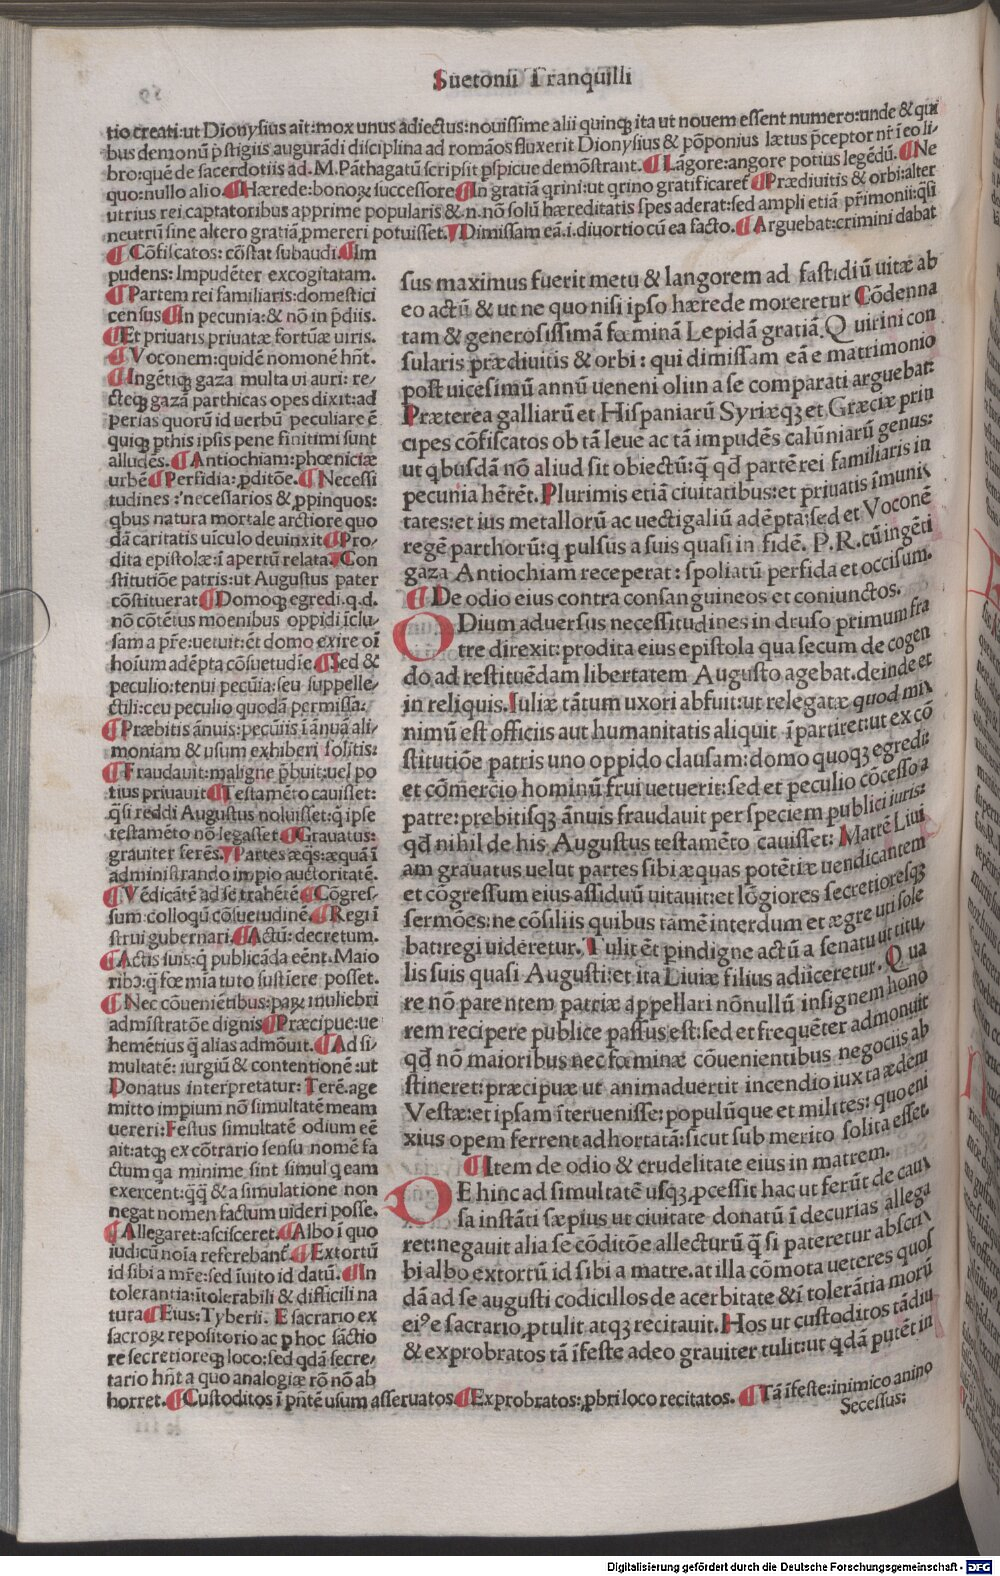 Suetonii Tranquilli
tio creati:ut Dionysius ait:mox unus adiectus:nouissime alii quinqꝫ ita ut nouem essent numero:unde & qui
bus demonū p̄stigiis augurādi disciplina ad romāos fluxerit Dionysius & pōponius lætus p̄ceptor nr̄ ī eo li/
bro:quē de sacerdotiis ad. M. Pāthagatū scripsit p̄spicue demōstrant. ¶ Lāgore:angore potius legēdū. ¶ Ne
quo:nullo alio ¶ Hærede:bonoꝝ successore ¶ In gratiā qrini:ut qrino gratificaret̄ ¶ Prædiuitis & orbi:alter
utrius rei captatoribus apprime popularis & .n. nō solū hæreditatis spes aderat:sed ampli etiā pr̄imonii:qsi
neutrū sine altero gratiā ꝓmereri potuisset. ¶ Dimissam eā.i.diuortio cū ea facto. ¶ Arguebat:crimini dabat
¶ Cōfiscatos: cōstat subaudi. ¶ Im
pudens: Impudēter excogitatam.
¶ Partem rei familiaris:domestici
census ¶ In pecunia:& nō in p̄diis.
¶ Et priuatis priuatæ fortūæ uiris.
¶ Voconem:quidē nomonē hn̄t.
¶ Ingētiqꝫ gaza multa ui auri: re/
cteqꝫ gazā parthicas opes dixit:ad
perias quorū id uerbū peculiare ē
quiqꝫ pthis ipsis pene finitimi sunt
alludēs. ¶ Antiochiam:phœniciæ
urbē ¶ Perfidia: ꝓditōe. ¶ Necessi
tudines :necessarios & ꝓpinquos:
qbus natura mortale arctiore quo
dā caritatis uīculo deuinxit ¶ Pro/
dita epistolæ:ī apertū relata. ¶ Con
stitutiōe patris:ut Augustus pater
cōstituerat ¶ Domoqꝫ egredi.q.d.
nō cōtētus moenibus oppidi īclu/
sam a pr̄e:uetuit:ēt domo exire oī
hoīum adēpta cōsuetudīe ¶ Sed &
peculio:tenui pecūia:seu suppelle/
ctili:ceu peculio quodā permissa:
¶ Præbitis ānuis:pecūiis ī ānuā ali/
moniam & usum exhiberi solitis:
¶ Fraudauit:maligne p̄buit:uel po
tius priuauit ¶ Testamēto cauisset:
qsi reddi Augustus noluisset:q ipse
testamēto nō legasset ¶ Grauatus:
grauiter ferēs. ¶ Partes æqs:æquā ī
administrando impio auctoritatē.
¶ Vēdicātē ad se trahētē ¶ Cōgres/
sum:colloqū cōsuetudinē. ¶ Regi ī
strui gubernari. ¶ Actū: decretum.
¶ Actis suis:q̄ publicāda eēnt. Maio
ribꝰ:q̄ fœmia tuto sustiere posset.
¶ Nec cōueniētibus:paꝝ muliebri
admīstratōe dignis ¶ Præcipue:ue
hemētius q̄ alias admōuit. ¶ Ad si/
multatē: iurgiū & contentionē :ut
Donatus interpretatur: Terē.age
mitto impium nō simultatē meam
uereri:Festus simultatē odium eē
ait:atqꝫ ex cōtrario sensu nomē fa
ctum qa minime sint simul q eam
exercent:qq̄ & a simulatione non
negat nomen factum uideri posse.
¶ Allegaret:ascisceret. ¶ Albo ī quo
iudicū noīa referebant̄ ¶ Extortū
id sibi a mr̄e:sed īuito id datū. ¶ In
tolerantia:ītolerabili & difficili na
tura ¶ Eius: Tyberii. E sacrario ex
sacroꝝ repositorio ac ꝑ hoc sāctio
re secretioreqꝫ loco:sed qdā secre/
tario hn̄t a quo analogiæ rō nō ab
horret. ¶ Custoditos ī pn̄tē usum asseruatos ¶ Exprobratos: ꝓbri loco recitatos. ¶ Tā īfeste:inimico animo
sus maximus fuerit metu & langorem ad fastidiū uitæ ab
eo actū & ut ne quo nisi ipso hærede moreretur Cōdenna
tam & generosissimā fœminā Lepidā gratiā. Quirini con
sularis prædiuitis & orbi : qui dimissam eā e matrimonio
post uicesimū annū ueneni olim a se comparati arguebat:
Præterea galliarū et Hispaniarū Syriæqꝫ et Græciæ prin
cipes cōfiscatos ob tā leue ac tā impudēs calūniarū genus:
ut qbusdā nō aliud sit obiectū:q̄ qd̄ partē rei familiaris in
pecunia hērēt. Plurimis etiā ciuitatibus:et priuatis īmuni/
tates:et ius metallorū ac uectigaliū adēpta:sed et Voconē
regē parthorū:q pulsus a suis quasi in fidē. P. R. cū ingēti
gaza Antiochiam receperat : spoliatū perfida et occisum.
¶ De odio eius contra consanguineos et coniunctos.
ODium aduersus necessitudines in druso primum fra
tre direxit: prodita eius epistola qua secum de cogen
do ad restituēdam libertatem Augusto agebat.deinde et
in reliquis. Iuliæ tātum uxori abfuit:ut relegatæ quod mi/
nimū est officiis aut humanitatis aliquit īpartiret:ut ex cō
stitutiōe patris uno oppido clausam:domo quoqꝫ egredi:
et cōmercio hominū frui uetuerit:sed et peculio cōcesso a
patre:prebitisqꝫ ānuis fraudauit per speciem publici iuris:
qd̄ nihil de his Augustus testamēto cauisset: Matrē Liui
am grauatus uelut partes sibi æquas potētiæ uendicantem
et cōgressum eius assiduū uitauit:et lōgiores secretioresqꝫ
sermōes:ne cōsiliis quibus tamē interdum et ægre uti sole
bat:regi uideretur. Tulit ēt pindigne actū a senatu ut titu/
lis suis quasi Augusti:et ita Liuiæ filius adiiceretur. Qua
re nō parentem patriæ appellari nō nullū insignem hono
rem recipere publice passus est:sed et frequēter admonuit
qd̄ nō maioribus nec fœminæ cōuenientibus negociis ab
stineret:præcipuæ ut animaduertit incendio iuxta ædem
Vestæ:et ipsam īteruenisse: populūque et milites: quo eni
xius opem ferrent adhortatā:sicut sub merito solita esset.
¶ Item de odio & crudelitate eius in matrem.
DEhinc ad simultatē usqꝫ ꝓcessit hac ut ferūt de cau/
sa instāti sæpius ut ciuitate donatū ī decurias allega
ret:negauit alia se cōditōe allecturū q̄ si pateretur abscri/
bi albo extortū id sibi a matre.at illa cōmota ueteres quos
dā ad se augusti codicillos de acerbitate &ī tolerātia morū
eiꝰ e sacrario ꝓtulit atqꝫ recitauit. Hos ut custoditos tādiu
& exprobratos tā īfeste adeo grauiter tulit:ut qdā putēt in
Secessus:
Digitalisierung gefördert durch die Deutsche Forschungsgemeinschaft - DFG